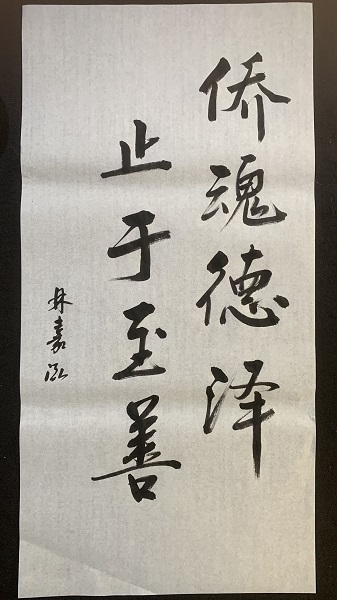 侨魂德泽
止于至善
林嘉泓